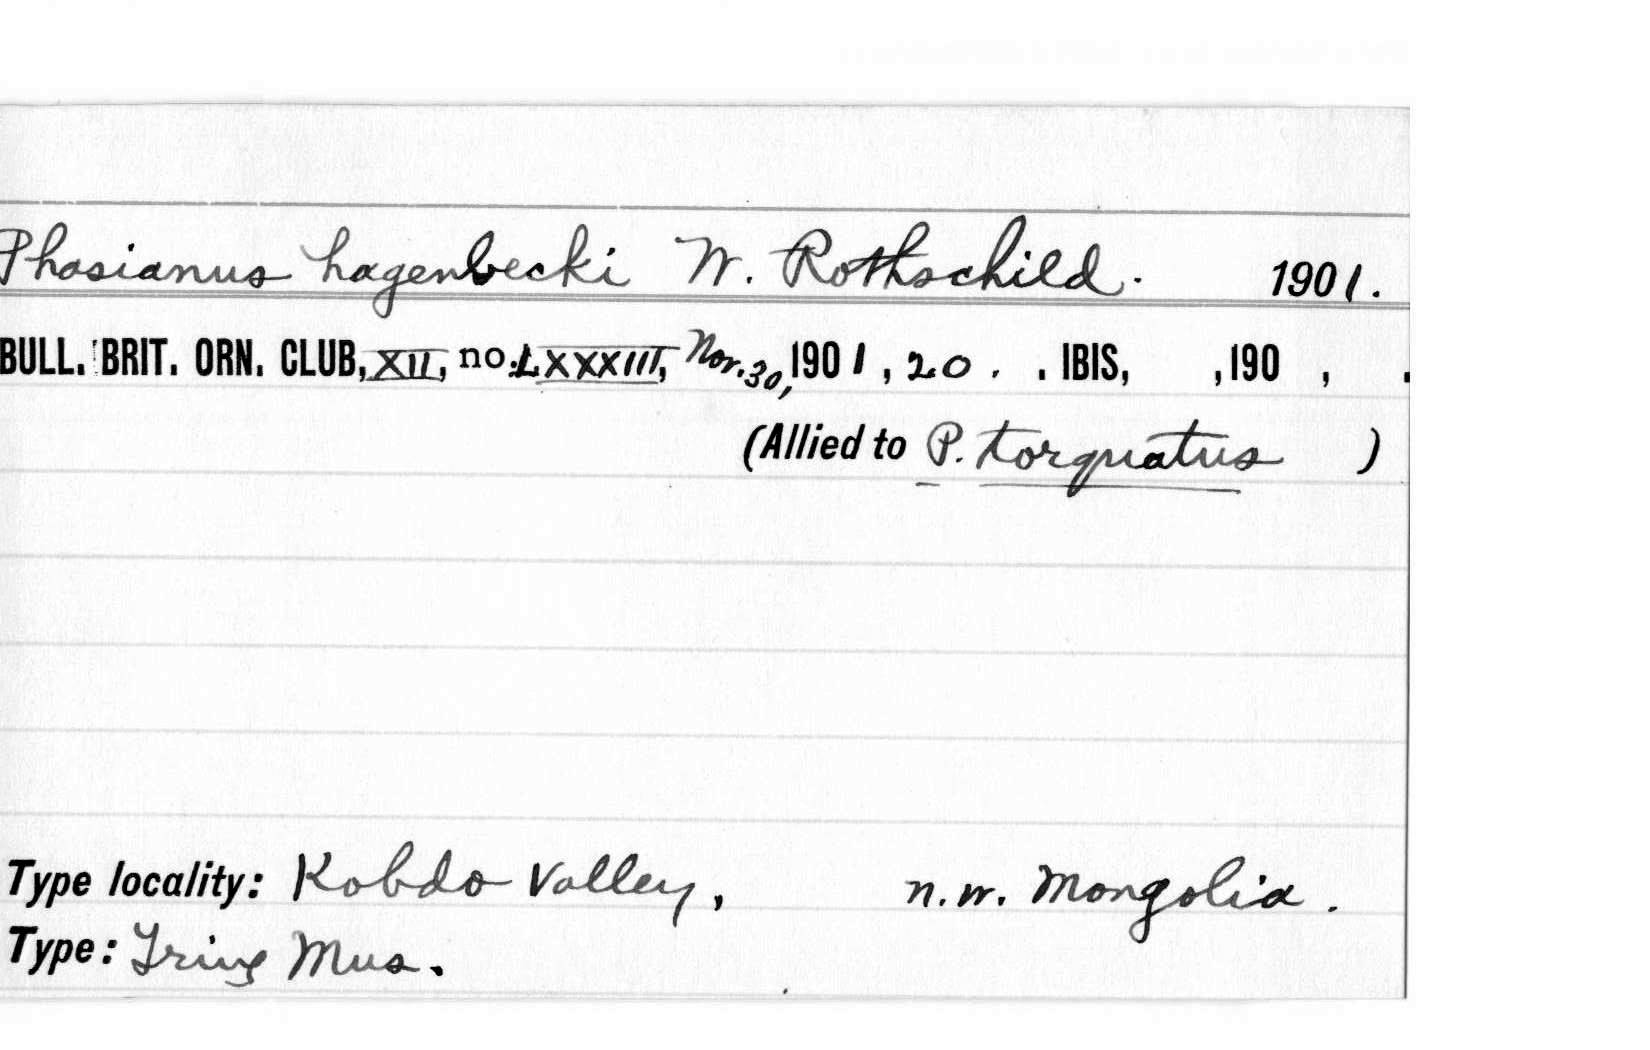 Phasianus hagenbecki W. Rothschild. 1901.
BULL. BRIT. ORN. CLUB, XII, no. LXXXIII, Nov. 30, 1901, 20. . IBIS, ,190 , .
(Allied to P. torquatus )
Type locality: Kobdo Valley, n.w. Mongolia.
Type: Tring Mus.